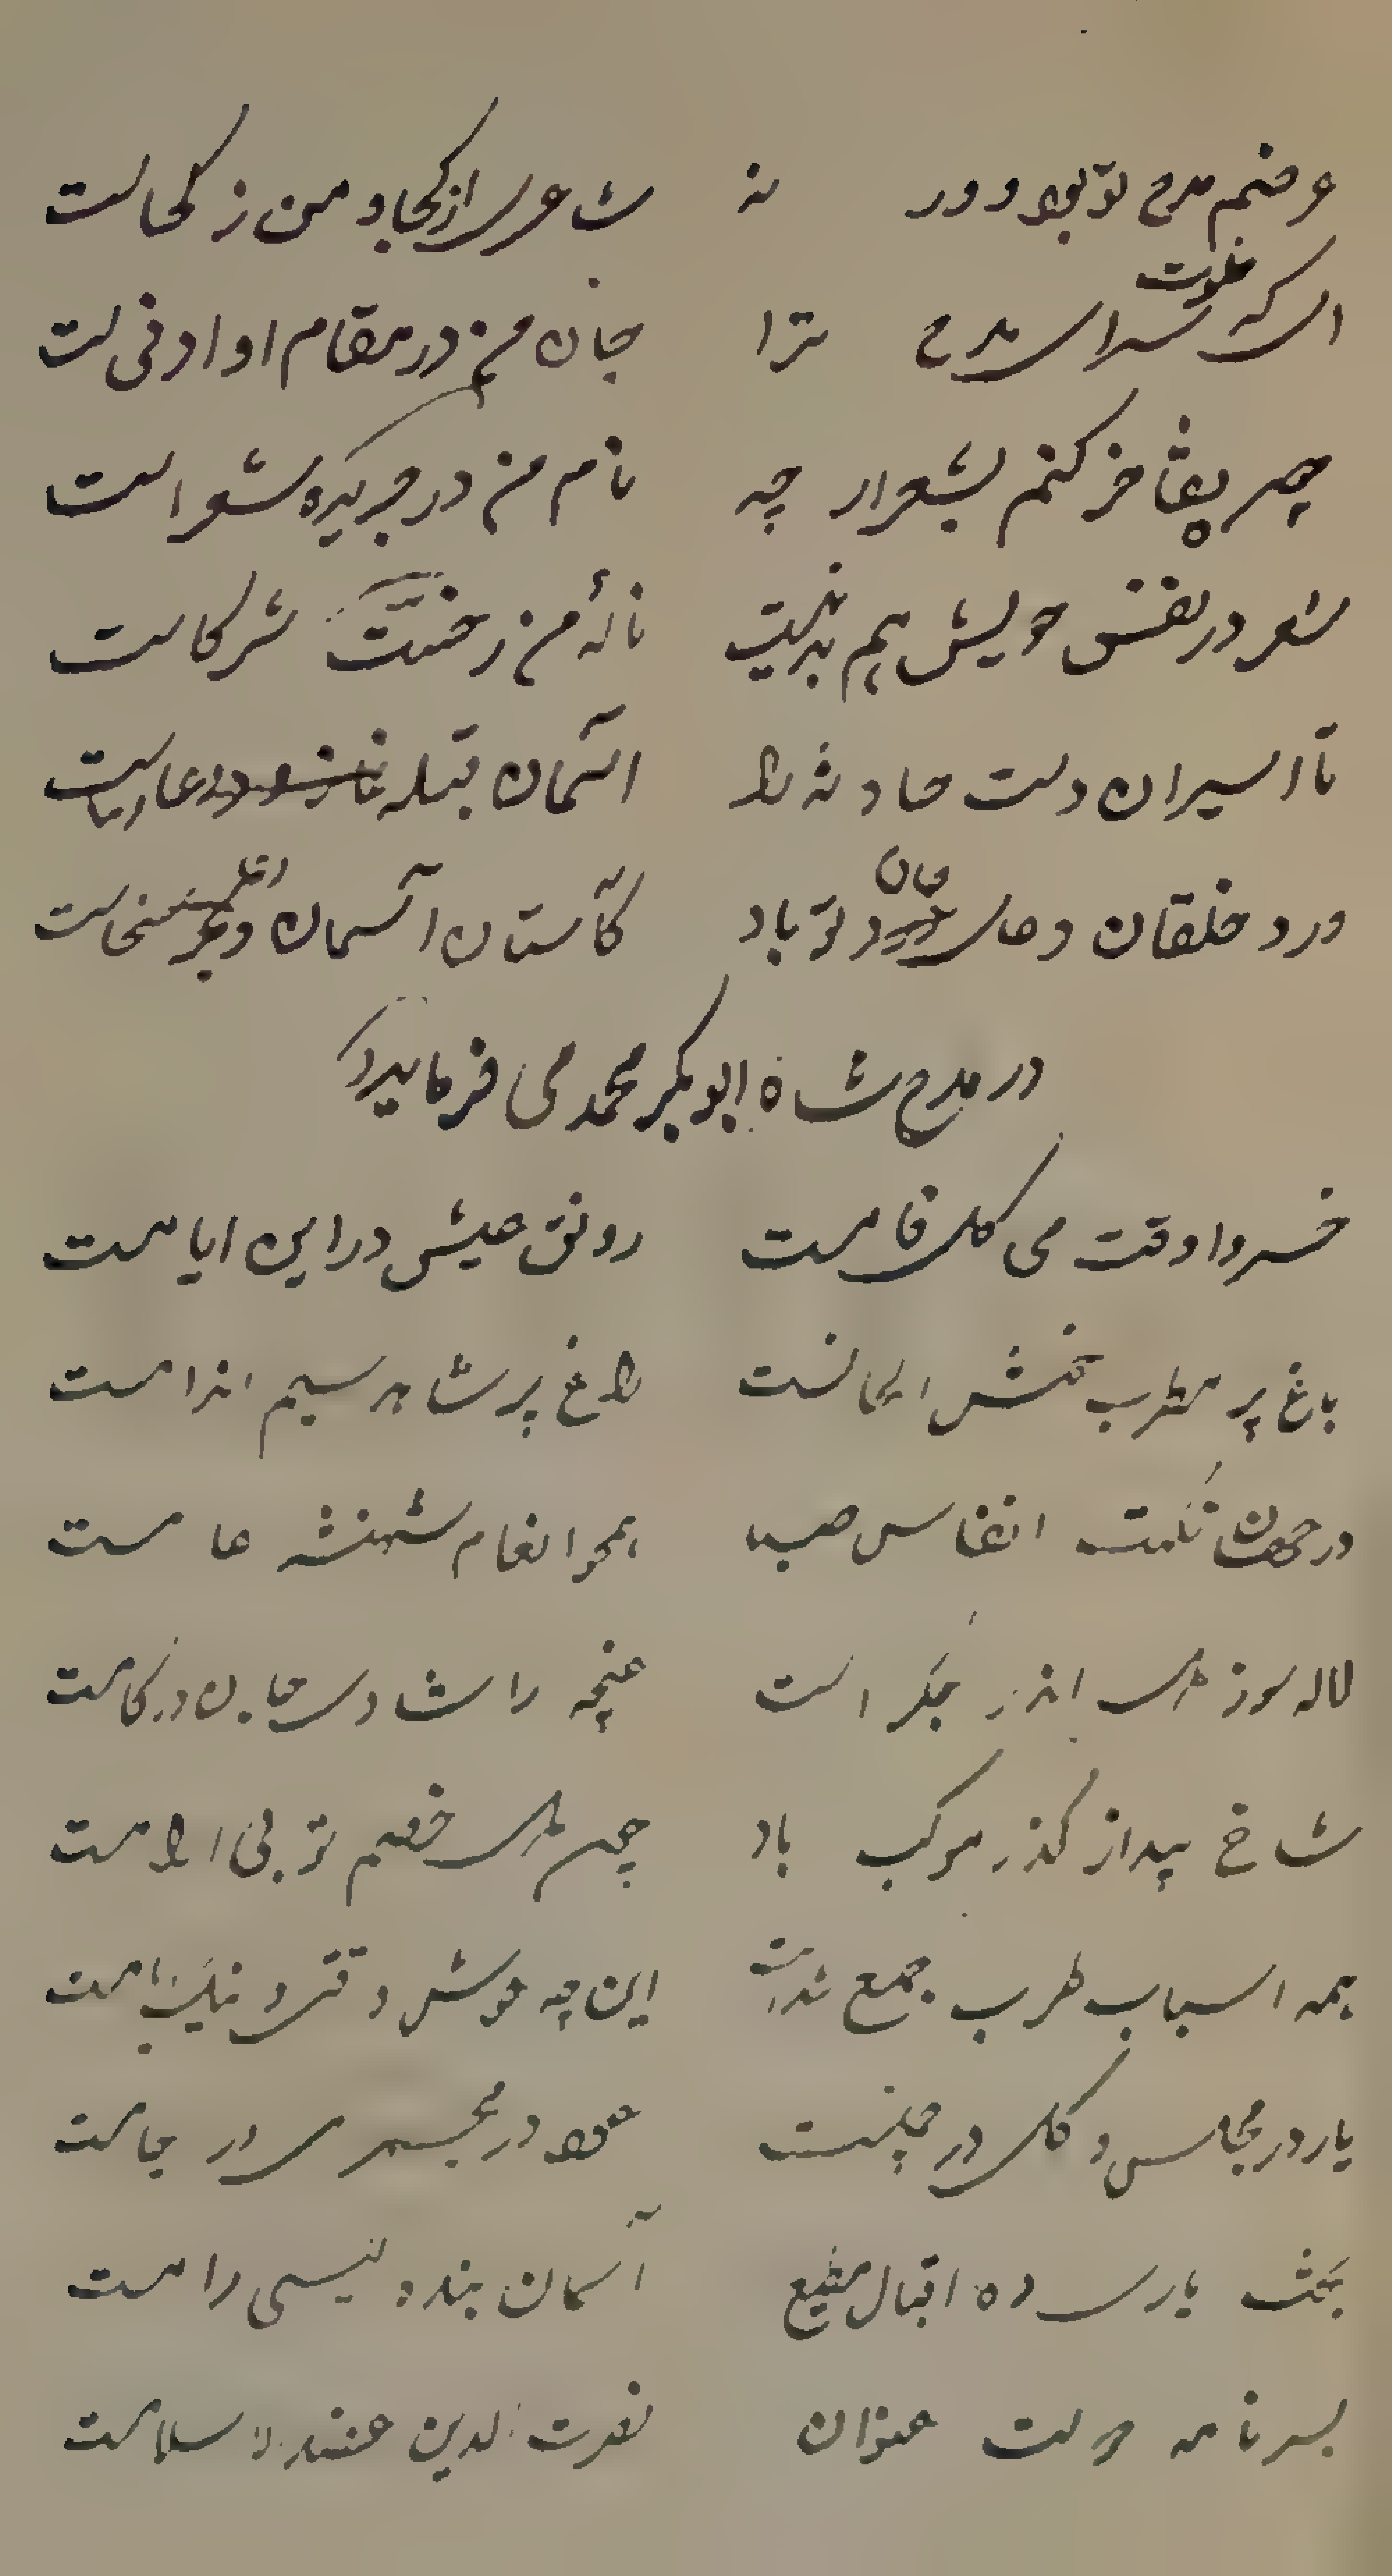 غرضم مدح تو بود ور نه شاعری از کجا و من ز کجاست
ای که خلوت سرای مدح ترا جان من در مقام او ادنی است
چه تفاخر کنم بشعر ار چه نام من در جریده شعراست
شعر در نفس خویش هم بد نیست ناله من ز خست شرکاست
تا اسیران دست حادثه را آسمان قبله دعا است
ورد خلقان دعای جان تو باد کآستان آسمان سخاست
در مدح شاه ابوبکر محمد می فرماید
خسروا وقت می گل فامست رونق عیش در این ایامست
باغ پر مطرب خوش الحانست راغ پر شاهد سیم اندامست
در جهان نکهت انفاس صبا همچو انعام شهنشه عامست
لاله سوز دل اندر جگر است غنچه را شادی جان در کامست
شاخ بید از گذر موکب باد چون دل خصم تو بی ارامست
همه اسباب طرب جمع شدست این چه خوش وقتی و نیک ایامست
یار در مجلس و گل در چمنست عود در مجمر و می در جامست
بخت یاری ده اقبال مطیع آسمان بنده لیسی رامست
بسر نامه دولت عنوان نصرت الدین عضد الاسلامست